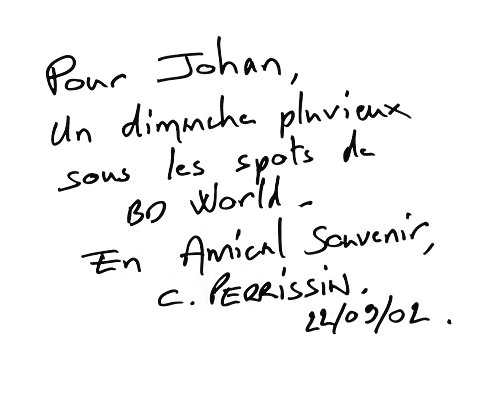 Pour Johan,
Un dimanche pluvieux
sous les spots de
BD World -
En Amical Souvenir,
C. PERRISSIN.
22/09/02.